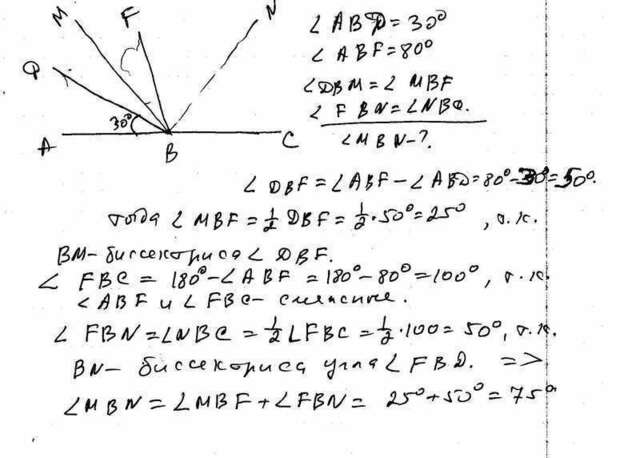 M
F
N
D
30°
A
B
C
∠ABD=30°
∠ABF=80°
∠DBM=∠MBF
∠FBN=∠NBC.
∠MBN-?
∠DBF=∠ABF-∠ABD=80°-30°=50°.
тогда ∠MBF=½DBF=½·50°=25°, т.к.
BM-биссектриса ∠DBF.
∠FBC=180°-∠ABF=180°-80°=100°, т.к.
∠ABF и ∠FBC-смежные.
∠FBN=∠NBC=½∠FBC=½·100=50°, т.к.
BN-биссектриса угла ∠FBD. =>
∠MBN=∠MBF+∠FBN=25°+50°=75°